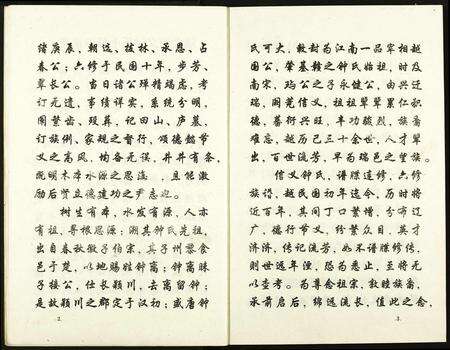 绪庚辰，朝远、拔林、承恩、占
春公；六修于民国十年，步芳、
翠长公。当日诸公殚精竭虑，考
订无遗，事绩详实，系统分明，
图茔齿、殁葬，记田山、庐墓，
订族例、家规之督行，颂德懿节
义之高风，均备无误，井井有条，
既明木本水源之思源，且能激
励后贤立德建功之尹志也。
树生有本，水发有源，人亦
有祖，寻根思源；溯其钟氏先祖，
出自春秋微子伯宗，其子州黎食
邑于楚，以地赐姓钟离；钟离昧
子接公，仕长颍川，去离留钟；
是故颍川之郡定于汉初；盛唐钟
2
氏可大，敕封为江南一品宰相越
国公，肇基赣之钟氏始祖，时及
南宋，玛公之子永健公，由兴迁
瑞，阁芜信义，祖祖辈辈累仁积
德，善衍兴旺，丰功骏烈，族裔
难忘，越历已三十余世，人才辈
出，百世流芳，早为瑞邑之望族。
信义钟氏，谱牒适修，六修
族谱，越民国初年迄今，历时将
近百年，其间丁口繁增，分布辽
广，德行节义，纷繁众目，英才
济济，传记流芳，如不谱牒修传，
则世远年湮，恐为悉止，至将无
以查考。为尊念祖宗，敦睦族裔，
承前启后，绵远流长，值此之念，
3